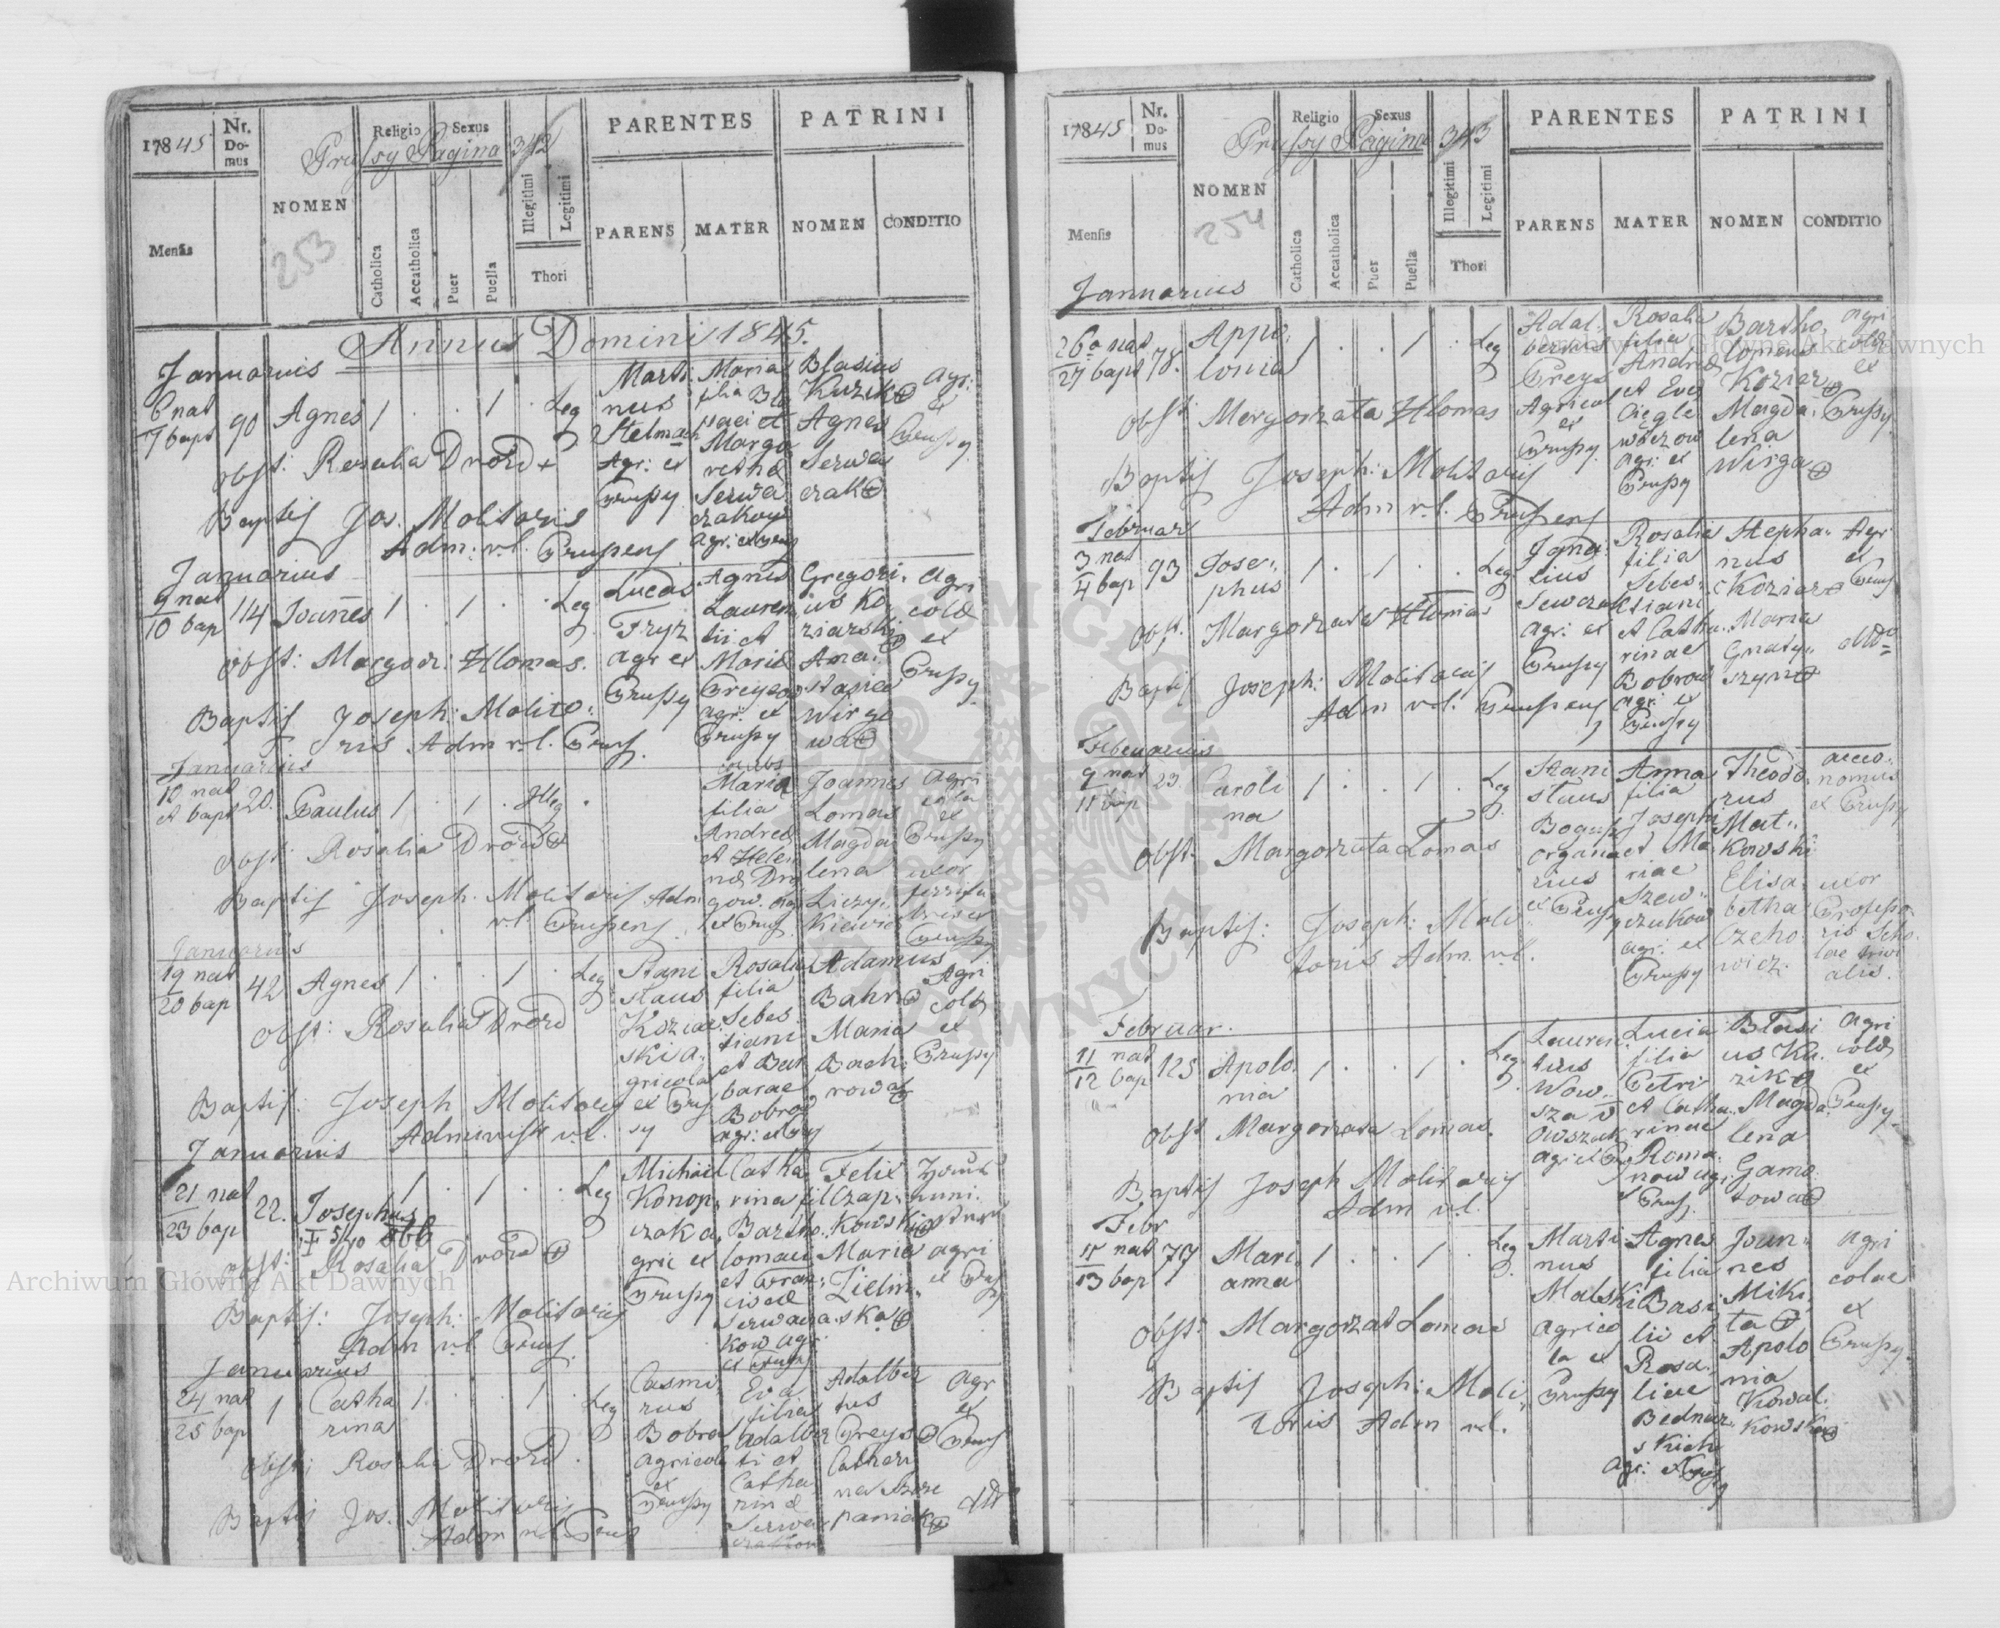 17845
Nr. Domus
Prussy Pagina 342
Religio
Sexus
PARENTES
PATRINI
Mensis
NOMEN
Catholica
Accatholica
Puer
Puella
Illegitimi
Legitimi
Thori
PARENS
MATER
NOMEN
CONDITIO
253
Annus Domini 1845.
Januarius
6 nat
7 bapt
90
Agnes
1 . . 1 . Leg
Martinus
Stelmach
Agr: ex
Prussy
Maria
filia Bla
Marga
retha
Serwa
czakow
Blasius
Kuzik
Agnes
Serwa
czak
Agr:
ex
Prussy
obst: Rosalia Drozd +
Baptis Jos. Molitoris
Adm: r.l. Prussens
Januarius
9 nat
10 bap
114
Joañes
1 . 1 . . Leg
Lucas
Fryz
agr ex
Prussy
Agnes
Lauren
tii et
Mariæ
agr. ex
Prussy
Gregori
us Ko
ziarski
Ana
stasia
Wirgo
wa
Agri
colæ
ex
Prussy
obst: Margor: Hlomas.
Baptis Joseph: Molito
ris Adm r.l. Prus.
Januarius
10 nat
et bapt
20.
Paulus
1 . 1 . Illeg .
Maria
filia
Andreæ
et Hele
næ
Joannes
Lomas
Magda
lena
Agri
cola
ex
Prussy
uxor
ex
Prussy
obst Rosalia Drozd
Baptis Joseph. Molitoris Adm
r.l. Prussens
Januarius
19 nat
20 bap
42
Agnes
1 . . 1 . Leg
Stani
slaus
Koziar
ski a
gricola
ex Prus
sy
Rosalia
filia
Sebas
tiani
et Bar
barae
Bobro
agr: ex Prussy
Adamus
Bahr
Maria
Bach
rowa
Agri
colæ
ex
Prussy
obst: Rosalia Drozd
Baptis: Joseph Molitoris
Administ r.l.
Januarius
21 nat
23 bap
22.
Josephus
1 . 1 . . Leg
Michael
Konop
czak a
gric ex
Prussy
Catha
rina fil
Bartho
lomaei
et Fran
ciscæ
Serwa
kow agr:
ex Prussy
Felix
Czap
kowski
Maria
Zielin
ska
agri
ex Prussy
obst: Rosalia Drozd
Baptis: Joseph: Molitoris
Adm r.l Prus.
Januarius
24 nat
25 bap
1
Catha
rina
1 . . 1 . Leg
Casimi
rus
Bobro
agricola
ex
Prussy
Eva
filia
Adalber
ti et
Catha
rinæ
Serwa
czakow
Adalber
tus
Greys
Cathari
na Szcze
paniak
Agr
ex
Prussy
dtto
obst: Rosalia Drozd
Baptis Jos. Molitoris
Adm r.l. Prus
17845
Nr. Domus
Prussy Pagina 343
Religio
Sexus
PARENTES
PATRINI
Mensis
NOMEN
Catholica
Accatholica
Puer
Puella
Illegitimi
Legitimi
Thori
PARENS
MATER
NOMEN
CONDITIO
254
Januarius
26 nat
27 bapt
78.
Appo
lonia
1 . . 1 . Leg
Adal
bertus
Greys
Agricol
ex
Prussy.
Rosalia
filia
Andreæ
et Eva
agr. ex
Prussy
Bartho
lomeus
Koziar
Magda
lena
Wirga
Agri
colæ
ex
Prussy.
obst. Mergorzata Hlomas
Baptis Joseph: Molitoris
Adm r.l. Prussens
Februar
3 nat
4 bap
93
Jose
phus
1 . 1 . . Leg
Igna
tius
Serwczak
agr: ex
Prussy
Rosalia
filia
Sebas
tiani
et Catha
rinae
Bobrow
agr: ex
Prussy
Stepha
nus
Koziar
Maria
Gnaty
szyn
Agr
ex
Prussy
dtto
obst. Margorzata Hlomas
Baptis Joseph: Molitoris
Adm r.l. Prussens
Februarius
9 nat
11 bap
23
Caroli
na
1 . . 1 . Leg
Stani
slaus
Bogusz
organa
rius
ex Prussy
Anna
filia
Josephi
et Ma
riae
Szew
czukow
agr: ex
Prussy
Theodo
rus
Mat
kowski
Elisa
betha
Czeho
wicz.
oeco
nomus
ex Prussy
uxor
Professo
ris Scho
lae trivi
alis.
obst. Margorzata Lomas
Baptis: Joseph: Moli
toris Adm r.l.
Februar.
11 nat
12 bap
125
Apolo
nia
1 . . 1 . Leg
Lauren
tius
Owszak
Lucia
filia
Petri
et Catha
rinae
Roma
now agr:
ex Prus.
Blasi
us Ku
zik
Magda
lena
Gamo
towa
Agri
colæ
ex
Prussy.
obst Margorzata Lomas.
Baptis Joseph Molitoris
Adm r.l.
Febr
11 nat
13 bap
77
Mari
anna
1 . . 1 . Leg
Marti
nus
Malski
agrico
la ex
Prussy
Agnes
filia
Basi
lii et
Rosa
liae
Bednar
skich
agr: ex Prussy
Joan
nes
Miki
ta
Apolo
nia
Kowal
kowska
Agri
colae
ex
Prussy.
obst: Margorzat Lomas
Baptis Joseph: Moli
toris Adm r.l.
Archiwum Główne Akt Dawnych
Archiwum Główne Akt Dawnych